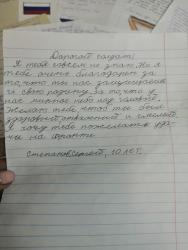 Дорогой солдат!
Я тебя совсем не знаю. Но я
тебе очень благодарен за
то, что ты нас защищаешь
и свою родину, за то, что у
нас мирное небо над головой.
Желаю тебе, чтоб ты был
здоровый, отважный и смелый.
Я хочу тебе пожелать уда-
чи на фронте.
Степанов Сергей, 10 лет.